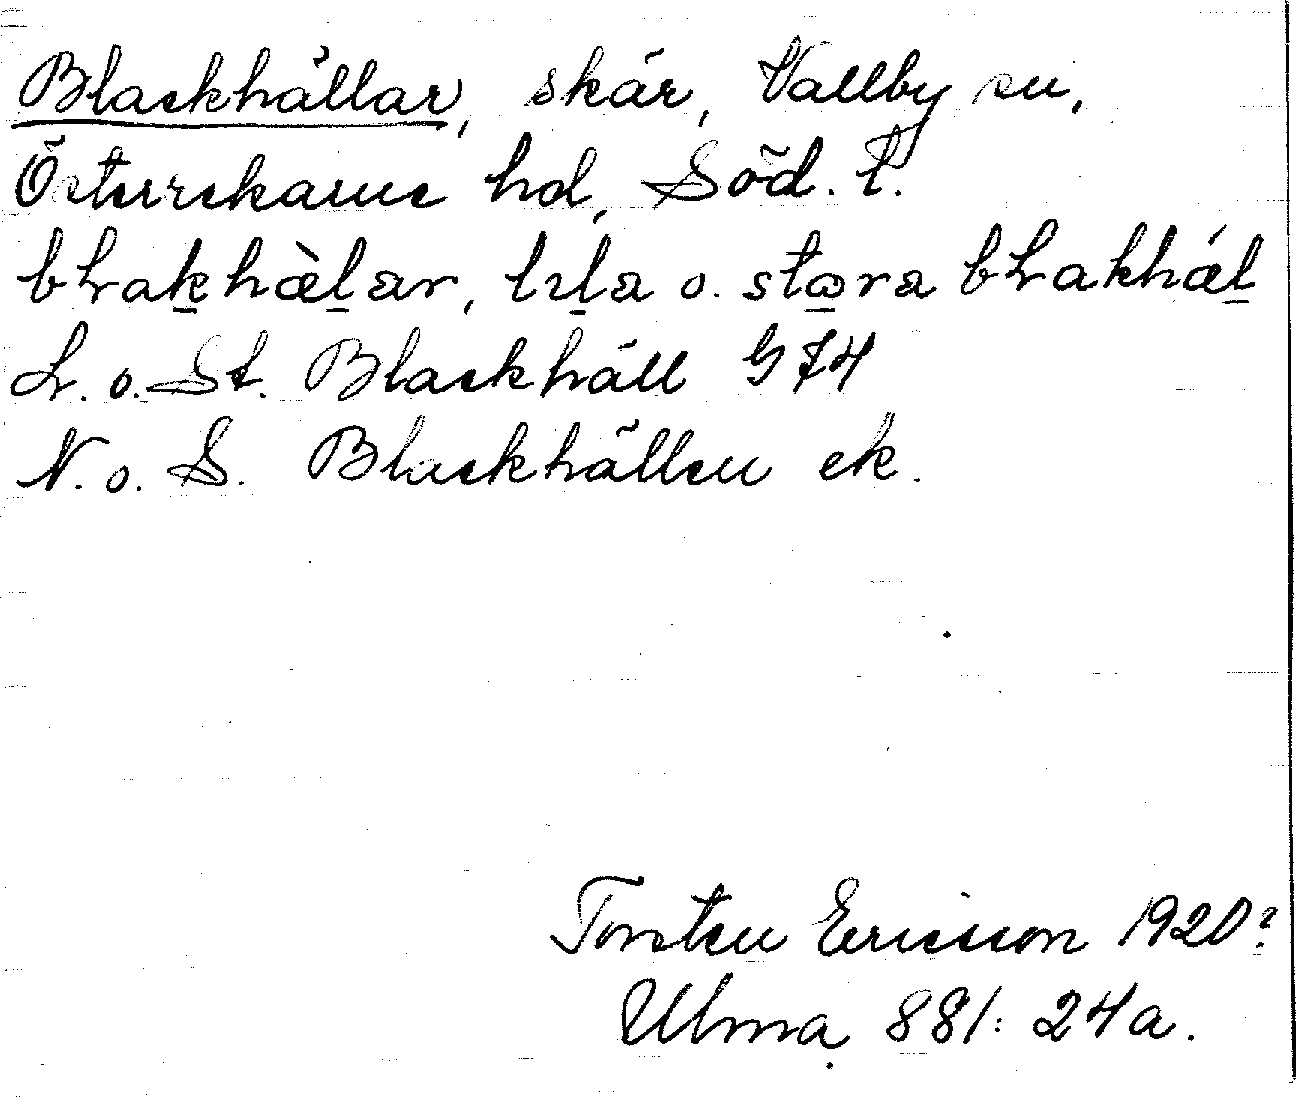 Blackhällar, skär, Vallby sn,
Österrekarne hd, Söd. l.
błak̲hæ̀l̲ar, lɩl̲a o. stɷ̲ra błakhǽl̲
L. o. St. Blackhäll G 74
N. o. S. Blackhällen ek.
Torsten Ericsson 1920?
Ulma 881: 24a.